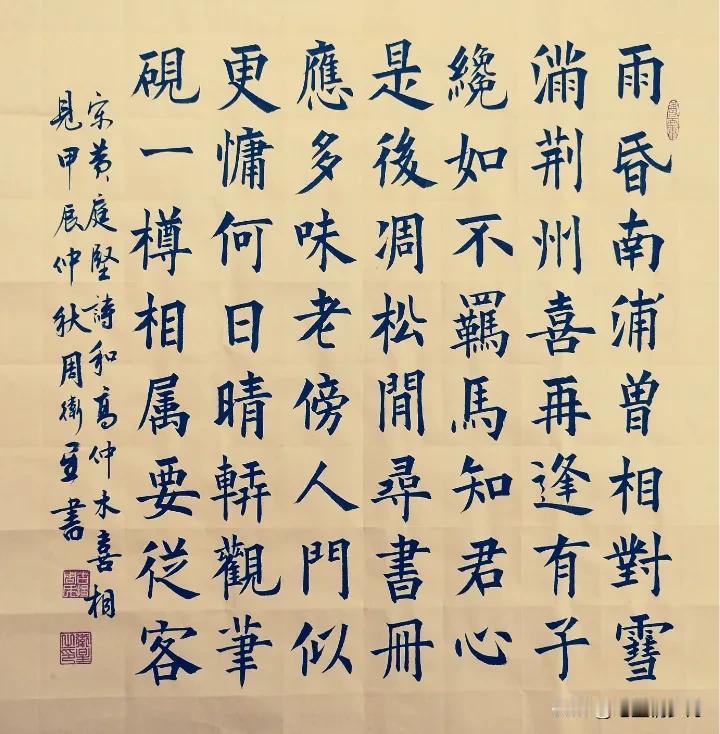 雨昏南浦曾相對雪
滿荆州喜再逢有子
纔如不羈馬知君心
是後凋松閒尋書冊
應多味老傍人門似
更慵何日晴軒觀筆
硯一樽相属要從客
宋黄庭堅詩和高仲本喜相
見甲辰仲秋周衛星書